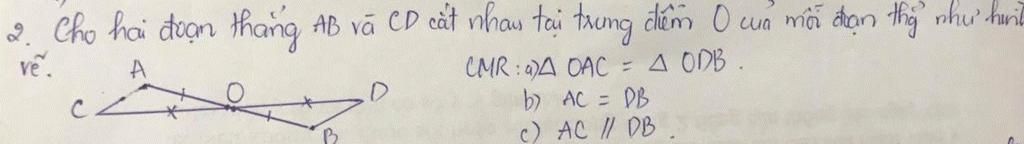 2. Cho hai đoạn thẳng AB và CD cắt nhau tại trung điểm O của mỗi đoạn thg như hình
vẽ.
CMR: a) Δ OAC = Δ ODB.
A
O
D
C
B
b) AC = DB
c) AC // DB.